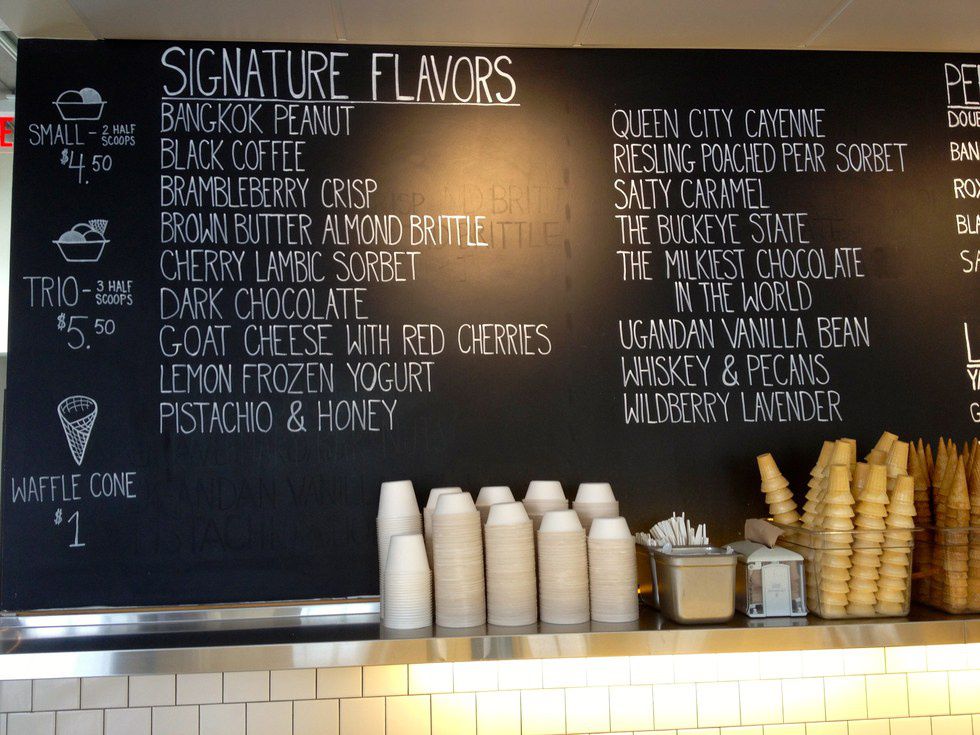 SIGNATURE FLAVORS
BANGKOK PEANUT
BLACK COFFEE
BRAMBLEBERRY CRISP
BROWN BUTTER ALMOND BRITTLE
CHERRY LAMBIC SORBET
DARK CHOCOLATE
GOAT CHEESE WITH RED CHERRIES
LEMON FROZEN YOGURT
PISTACHIO & HONEY
QUEEN CITY CAYENNE
RIESLING POACHED PEAR SORBET
SALTY CARAMEL
THE BUCKEYE STATE
THE MILKIEST CHOCOLATE
IN THE WORLD
UGANDAN VANILLA BEAN
WHISKEY & PECANS
WILDBERRY LAVENDER
SMALL - 2 HALF
SCOOPS
$4.50
TRIO - 3 HALF
SCOOPS
$5.50
WAFFLE CONE
$1